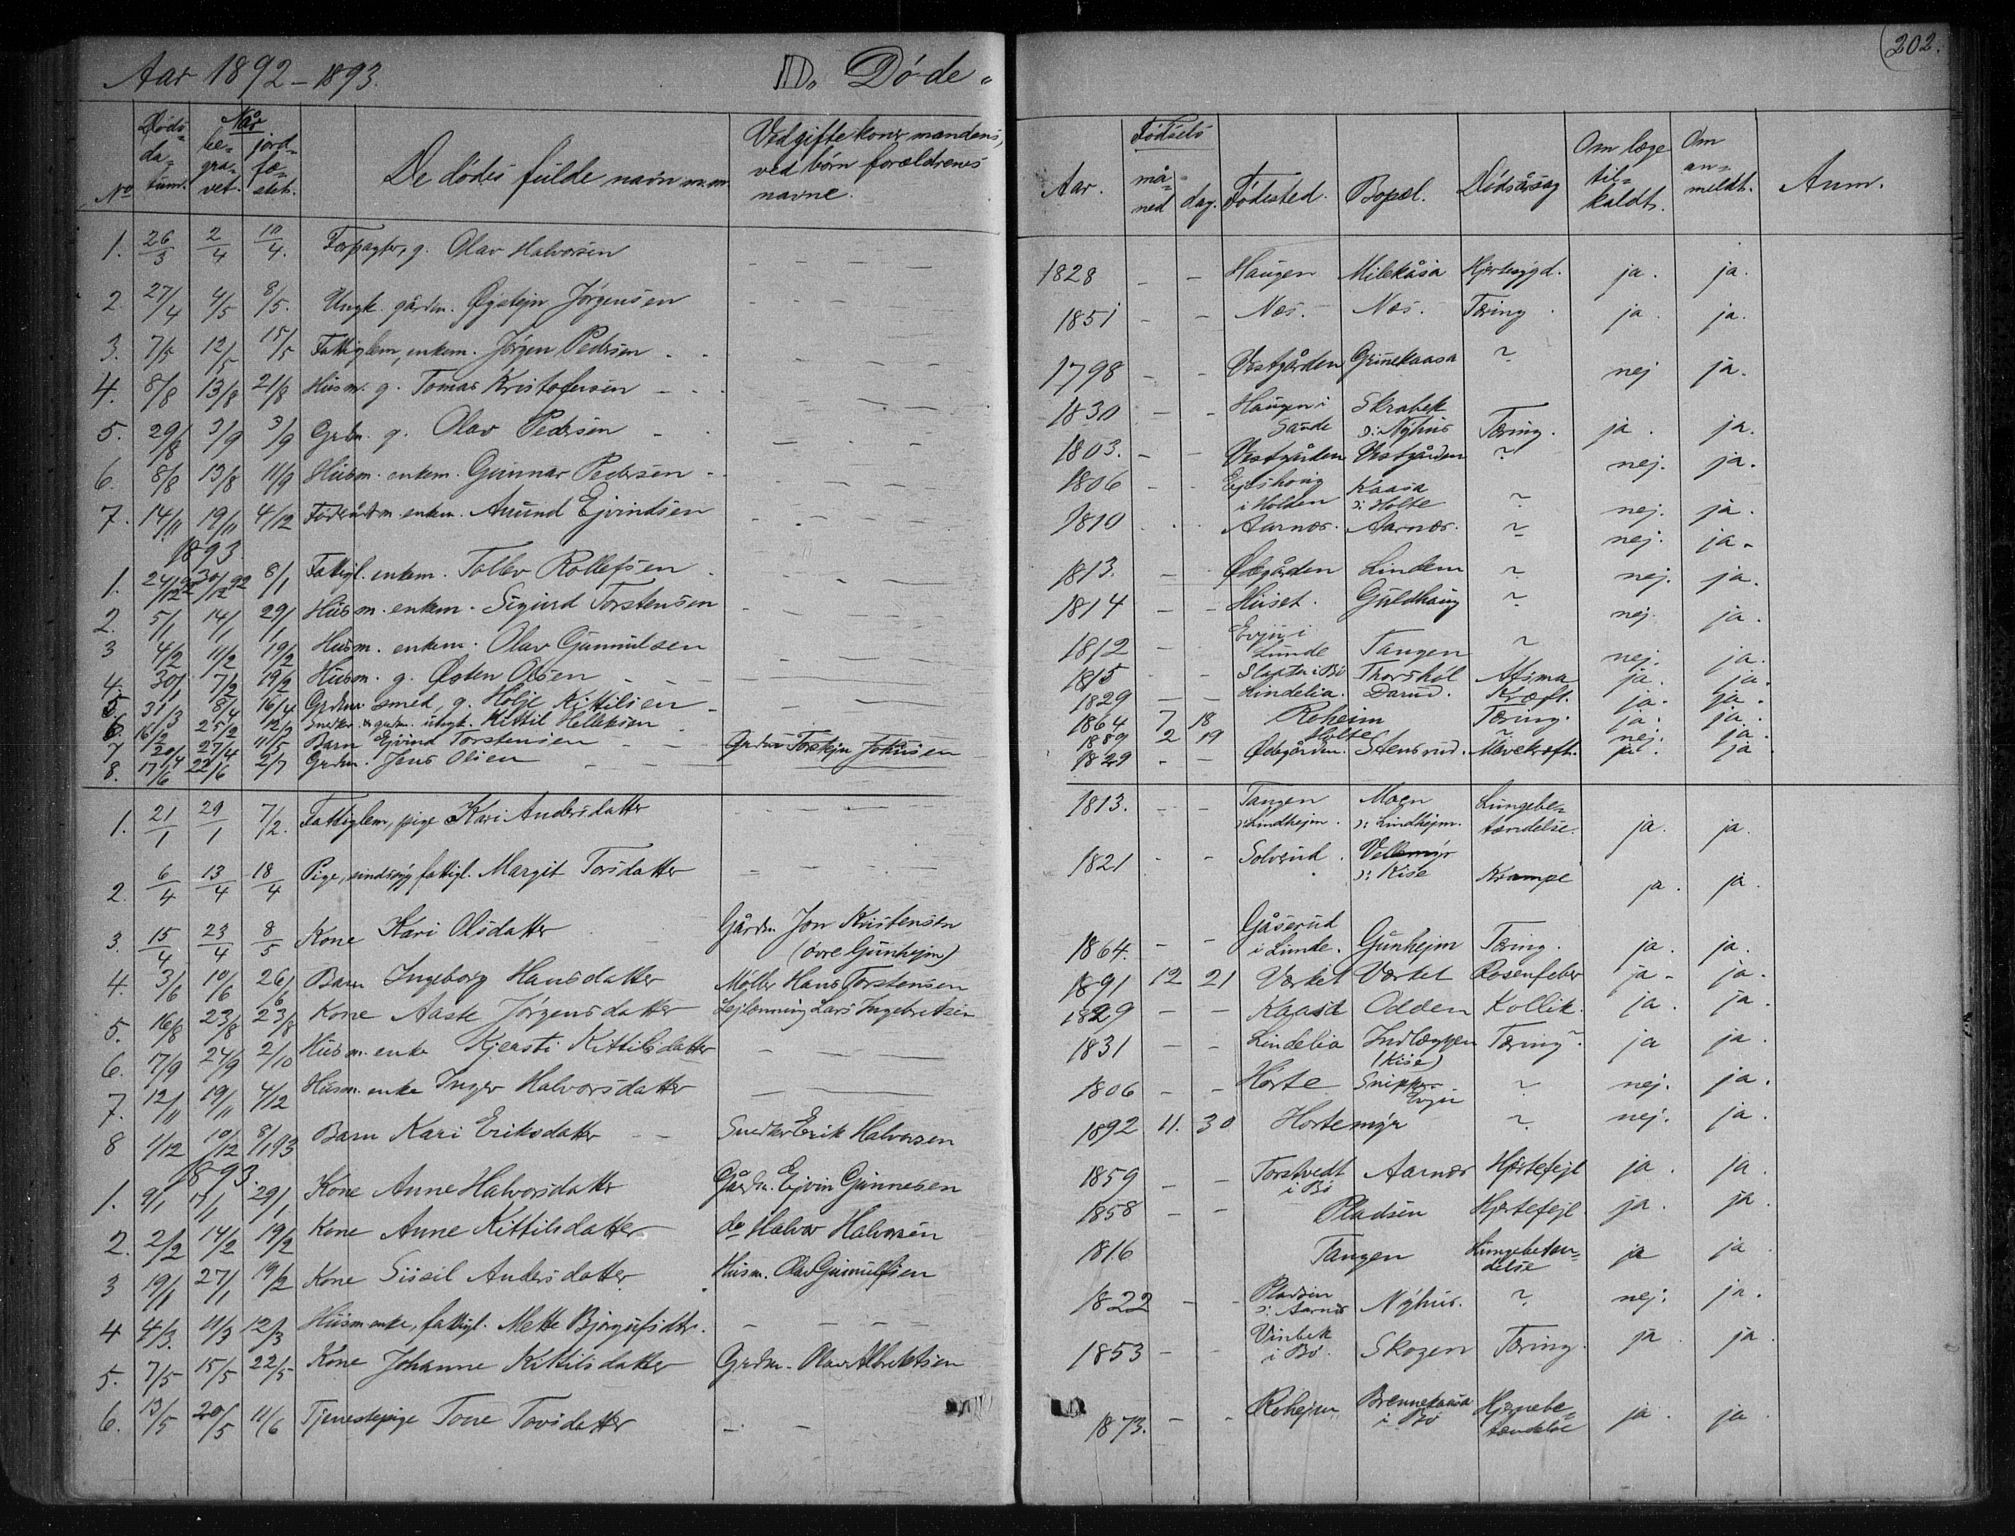 Aar 1892-1893. D. Døde. 202.
No Døds-datum. Når be-gra-vet. jord-fæ-stet. De dødes fulde navn m.m. Ved gifte koner mandens, ved børn forældrenes navne. Fødsels Aar. må-ned dag. Fødested. Bopæl. Dødsårsag Om læge til-kaldt. Om an-meldt. Anm.
1. 26/3 2/4 10/4. Forpagter, g. Olav Halvorsen 1828 - - Haugen Milekåsa Hjertesygd. ja. ja.
2. 27/4 4/5 8/5. Ungk. gårdm. Øystejn Jørgensen 1851 - - Nes. Nes. Tæring. ja. ja.
3. 7/5 12/5 15/5 Fattiglem, enkem. Jørgen Pedersen 1798 - - Vestgården Grinekaasa ? nej ja.
4. 8/8 13/8 21/8 Husm. g. Tomas Kristofersen 1830 - - Haugen i Sande Skrabek ɔ: Nyhus Tæring. ja. ja.
5. 29/8 3/9 3/9 Grdm. g. Olav Pedersen 1803. - - Vestgården Vestgården ? nej. ja.
6. 8/8 13/8 11/9 Husm. enkem. Gunnar Pedersen 1806 - - i Holden Kaasa ɔ: Holte ? nej. ja.
7. 14/11 19/11 4/12 Føderådm. enkem. Amund Ejvindsen 1810 Aarnes. Aarnes. ? nej. ja.
1893.
1. 24/12 92 30/12 92 8/1 Fattigl. enkem. Tollev Rollefsen 1813. - Ødegården Lindem ? nej. ja.
2. 5/1 14/1 29/1 Husm. enkem. Sigurd Torstensen 1814 - - Huset. Guldhaug ? nej. ja.
3 4/2 11/2 19/2 Husm. enkem. Olav Gunnulsen 1812 - Evju i Lunde Tangen ? nej. ja.
4. 30/1 7/2 19/2 Husm. g. Østen Olsen 1815 i Bø Thorshol Astma ja. ja.
5 31/3 8/4 16/4 Grdm. smed, g. Holje Kittilsen 1829 - - Lindelia. Darud. Kræft. ja. ja.
6. 16/2 25/2 12/3 Snedker & grdm. ungk. Kittil Helleksen 1864 7 18 Roheim Tæring. ja. ja.
7 20/4 27/4 11/5 Barn Ejvind Torstensen Grdm. Torstejn Johnsen 1889 2 19 Holte ? nej. ja.
8. 17/6 22/6 2/7 Grdm. Jens Olsen 1829 - - Ødegården. Stensrud. Mavekræft. ja. ja
1. 21/1 29/1 7/2. Fattiglem, pige Kari Andersdatter 1813. - - Tangen ɔ: Lindhejm. Moen ɔ: Lindhejm. Lungebe-tændelse. ja. ja.
2. 6/4 13/4 18/4 Pige, sindssyg fattigl. Margit Torsdatter 1821 - - Solverud. Vellemyr ɔ: Kise Krampe ja. ja.
3. 15/4 23/4 8/5 Kone Kari Olsdatter Gårdm. Jon Kristensen (øvre Gunhejm) 1864. - - Gåserud i Lunde. Gunhejm Tæring. ja. ja.
4. 3/6 10/6 26/6 Barn Ingeborg Hansdatter Møller Hans Torstensen 1891 12 21 Værket Værket Rosenfeber ja. ja.
5. 16/8 23/8 23/8 Kone Aaste Jørgensdatter Lejlænning Lars Ingebretsen 1829 - - Kaasa Odden Kollik. ja. ja.
6. 7/9 24/9 2/10 Husm. enke Kjersti Kittilsdatter 1831 - - Lindelia Indlæggen (Kise) Tæring ja ja.
7. 12/11 19/11 4/12 Husm. enke Inger Halvorsdatter 1806 - - Horte Snipper Evju ? nej. ja.
8 1/12 10/12 8/1 93 Barn Kari Eriksdatter Snedker Erik Halvorsen 1892 11. 30 Hortemyr ? nej. ja.
1893.
1. 9/1 17/1 29/1 Kone Anne Halvorsdatter Gårdm. Ejvin Gunnesen 1859 - - Torstvedt i Bø Aarnes Hjertefejl ja. ja.
2. 2/2 14/2 19/2 Kone Anne Kittilsdatter do Halvor Halvorsen 1858 - - Pladsen Hjertefejl ja. ja.
3 19/1 27/1 19/2 Kone Siseil Andersdatter Husm. Olav Gunnulfsen 1816 Tangen Lungebetæn-delse ja ja
4 4/3. 11/3 12/3 Husm enke, fattigl. Mette Bjørgufsdtr. 1822 - - Pladsen ɔ: Aarnes Nyhus. ? nej. ja.
5. 7/5 15/5 22/5 Kone Johanne Kittilsdatter Grdm. Olav Albretsen 1853 - - Vinbek i Bø. Skogen Tæring. ja. ja.
6. 13/5 20/5 11/6 Tjenestepige Tone Tovsdatter 1873. - - Rohejm Brennekaasa i Bø Hjernebe-tændelse ja. ja.